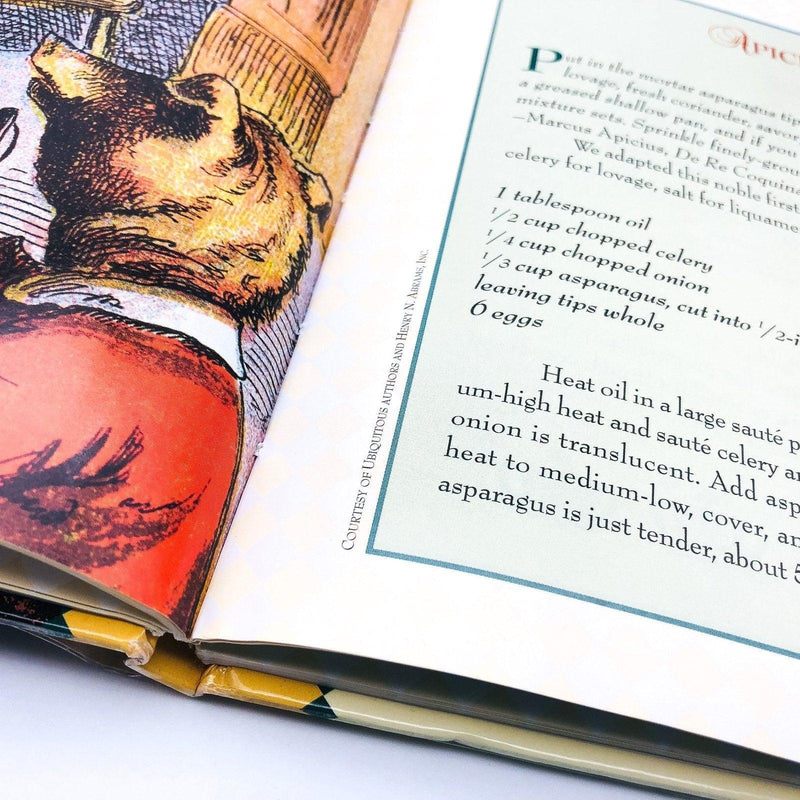 APIC
Put in the mortar asparagus tip
lovage, fresh coriander, savor
a greased shallow pan, and if you
mixture sets. Sprinkle finely-grou
–Marcus Apicius, De Re Coquina
We adapted this noble first
celery for lovage, salt for liquame
1 tablespoon oil
1/2 cup chopped celery
1/4 cup chopped onion
1/3 cup asparagus, cut into 1/2-i
leaving tips whole
6 eggs
Heat oil in a large sauté p
um-high heat and sauté celery an
onion is translucent. Add asp
heat to medium-low, cover, an
asparagus is just tender, about 5
COURTESY OF UBIQUITOUS AUTHORS AND HENRY N. ABRAMS, INC